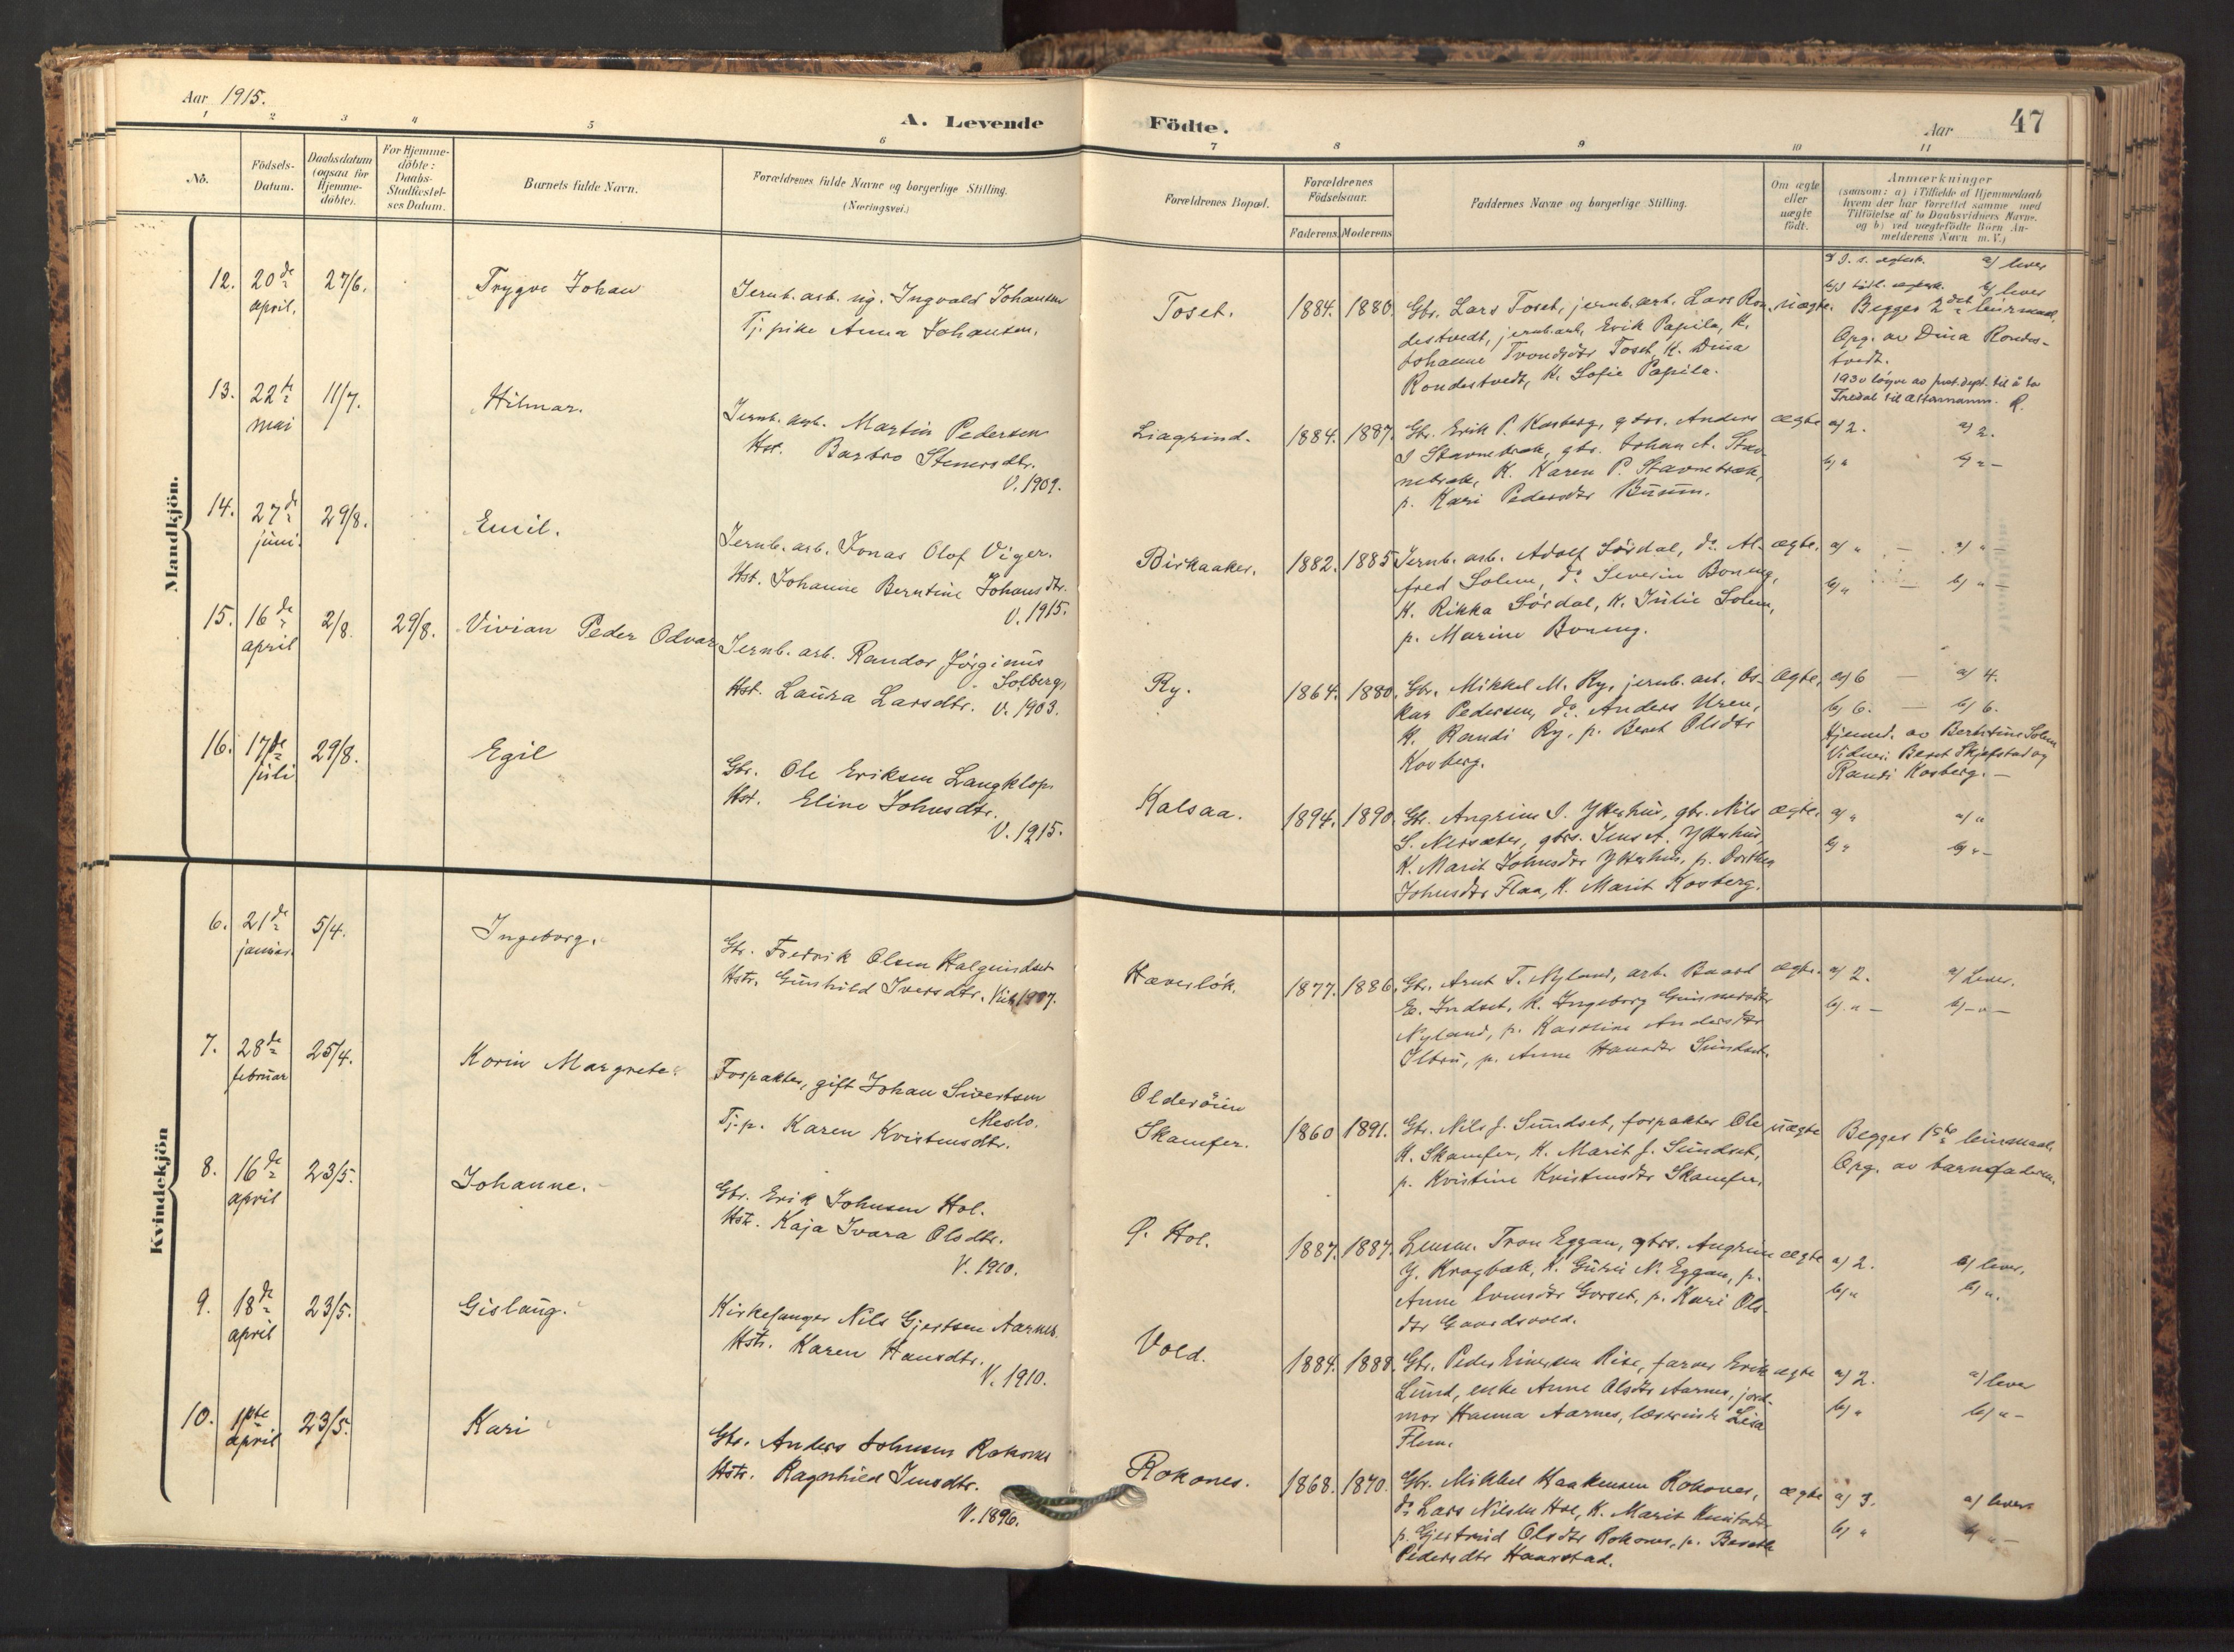 Aar 1915.
A. Levende
Födte.
Aar
47
1 2 3 4 5 6 7 8 9 10 11
No.
Födsels-
Datum.
Daabsdatum
(ogsaa for
Hjemme-
döbte).
For Hjemme-
döbte:
Daabs-
Stadfæstel-
ses Datum.
Barnets fulde Navn.
Forældrenes fulde Navne og borgerlige Stilling.
(Næringsvei.)
Forældrenes Bopæl.
Forældrenes
Födselsaar.
Faderens.
Moderens
Faddernes Navne og borgerlige Stilling.
Om ægte
eller
uægte
födt.
Anmærkninger
(saasom: a) i Tilfælde af Hjemmedaab
hvem der har forrettet samme med
Tilföielse af to Daabsvidners Navne.
og b) ved uægtefödte Börn An-
melderens Navn m. V.)
Mandkjön.
12. 20de april. 27/6. Trygve Johan
Jernb. arb. ug. Ingvald Johansen
Tj. pike Anna Johansen.
Toset. 1884. 1880.
Gbr. Lars Toset, jernb. arb. Lars Ron-
destvedt, jernb. arb. Erik Papila, K.
Johanne Trondsdtr Toset, K. Dina
Rondestvedt, K. Sofie Papila.
uægte.
a) lever
b) lever
Begges 2det leiermaal.
Opg. av Dina Rondes-
tvedt.
13. 22de mai 11/7. Hilmar.
Jernb. arb. Martin Pedersen
Hst. Barbro Stenersdtr.
V. 1909.
Liagrind. 1884. 1887.
Gbr. Erik P. Kosberg, gbrs. Anders
J Stavnebræk, gbr. Johan A. Stav-
nebræk, K. Karen P. Stavnebræk,
p. Kari Pedersdtr
ægte
a) 2. a) 2.
b) " b) " -
14. 27de juni. 29/8. Emil.
Jernb. arb. Jonas Olof Viger.
Hst. Johanne Berntine Johansdtr.
V. 1915.
Birkaaker. 1882. 1885
Jernb. arb. Adolf Sördal, do. Al-
fred Solem, do. Severin Boneng,
K. Rikka Sördal, K. Julie Solem,
p. Marine Boneng.
ægte.
a) " - a) " -
b) " - b) " -
15. 16de april 2/8. 29/8. Vivian Peder Odvar
Jernb. arb. Randor Jörginus
Solberg.
Hst. Laura Larsdtr. V. 1903.
Ry. 1864. 1880.
Gbr. Mikkel M. Ry, jernb. arb. Os-
kar Pedersen, do. Anders Uren,
K. Randi Ry, p. Beret Olsdtr
Kosberg.
ægte.
a) 6 - a) 4.
b) 6. - b) 6.
Hjemmed. av Berntine Solem
Vidner: Beret Skjefstad og
Randi Kosberg. -
16. 17de juli 29/8. Egil
Gbr. Ole Eriksen Langklop
Hst. Eline Johnsdtr.
V. 1915.
Kalsaa. 1894. 1890.
Gbr. Angrim J. Ytterhus, gbr. Nils
S. Nersæter, gbrs. Jens A. Ytterhus,
K. Marit Johnsdtr Ytterhus, p. Dorthea
Johnsdtr Flaa, K. Marit Kosberg.
ægte.
a) " a) "
b) " b) " -
Kvindekjön
6. 21de januar. 5/4. Ingeborg.
Gbr. Fredrik Olsen Halgundset
Hstr. Gunhild Iversdtr. Vid 1907.
Hæverlök. 1877. 1886.
Gbr. Arnt T. Nyland, arb. Baard
E. Indset, K. Ingeborg Gunnarsdtr
Nyland, p. Karoline Andersdtr
Ilbru, p. Anne Hansdtr Sundset.
ægte.
a) 2. a) Lever.
b) " - b) - " -
7. 28de februar 25/4. Korin Margrete.
Forpakter, gift Johan Sivertsen
Meslo.
Tj. p. Karen Kristensdtr.
Olderöien
Skamfer. 1860 1891.
Gbr. Nils J. Sundset, forpakter Ole
K. Skamfer, K. Marit J. Sundset,
p. Kristine Kristensdtr Skamfer.
uægte
Begges 1ste leiermaal.
Opg. av barnefaderen.
8. 16de april 23/5. Johanne.
Gbr. Erik Johnsen Hol.
Hstr. Kaja Ivara Olsdtr.
V. 1910.
Hol. 1887. 1887.
Lensm. Tron Eggan, gbrs. Angrim
J. Krogbæk, K. Guru N. Eggan, p.
Anne Gorset, p. Kari Ols-
dtr Gaardsvold.
ægte
a) 2. a) lever.
b) " b) ".
9. 18de april 23/5. Gislaug.
Kirkesanger Nils Gjertsen Aarnes.
Hstr. Karen Hansdtr.
V. 1910.
Vold. 1884. 1888.
Gbr. Peder Einersen Rise, farver Erik
Lund, enke Anne Olsdtr Aarnes, jord-
mor Hanna Aarnes, læreinde Lisa
Flem.
ægte
a) 2. a) lever
b) " b) " -
10. 1ste april 23/5. Kari
Gbr. Anders Johnsen Rokones
Hstr. Ragnhild Jensdtr.
V. 1896.
Rokones. 1868. 1870.
Gbr. Mikkel Haakensen Rokones,
do Lars Nilsen Hol, K. Marit Knutsdtr
p. Gjertrud Olsdtr Rokones, p. Bereth
Pedersdtr Haarstad.
ægte
a) 3. a) lever
b) " b) " -